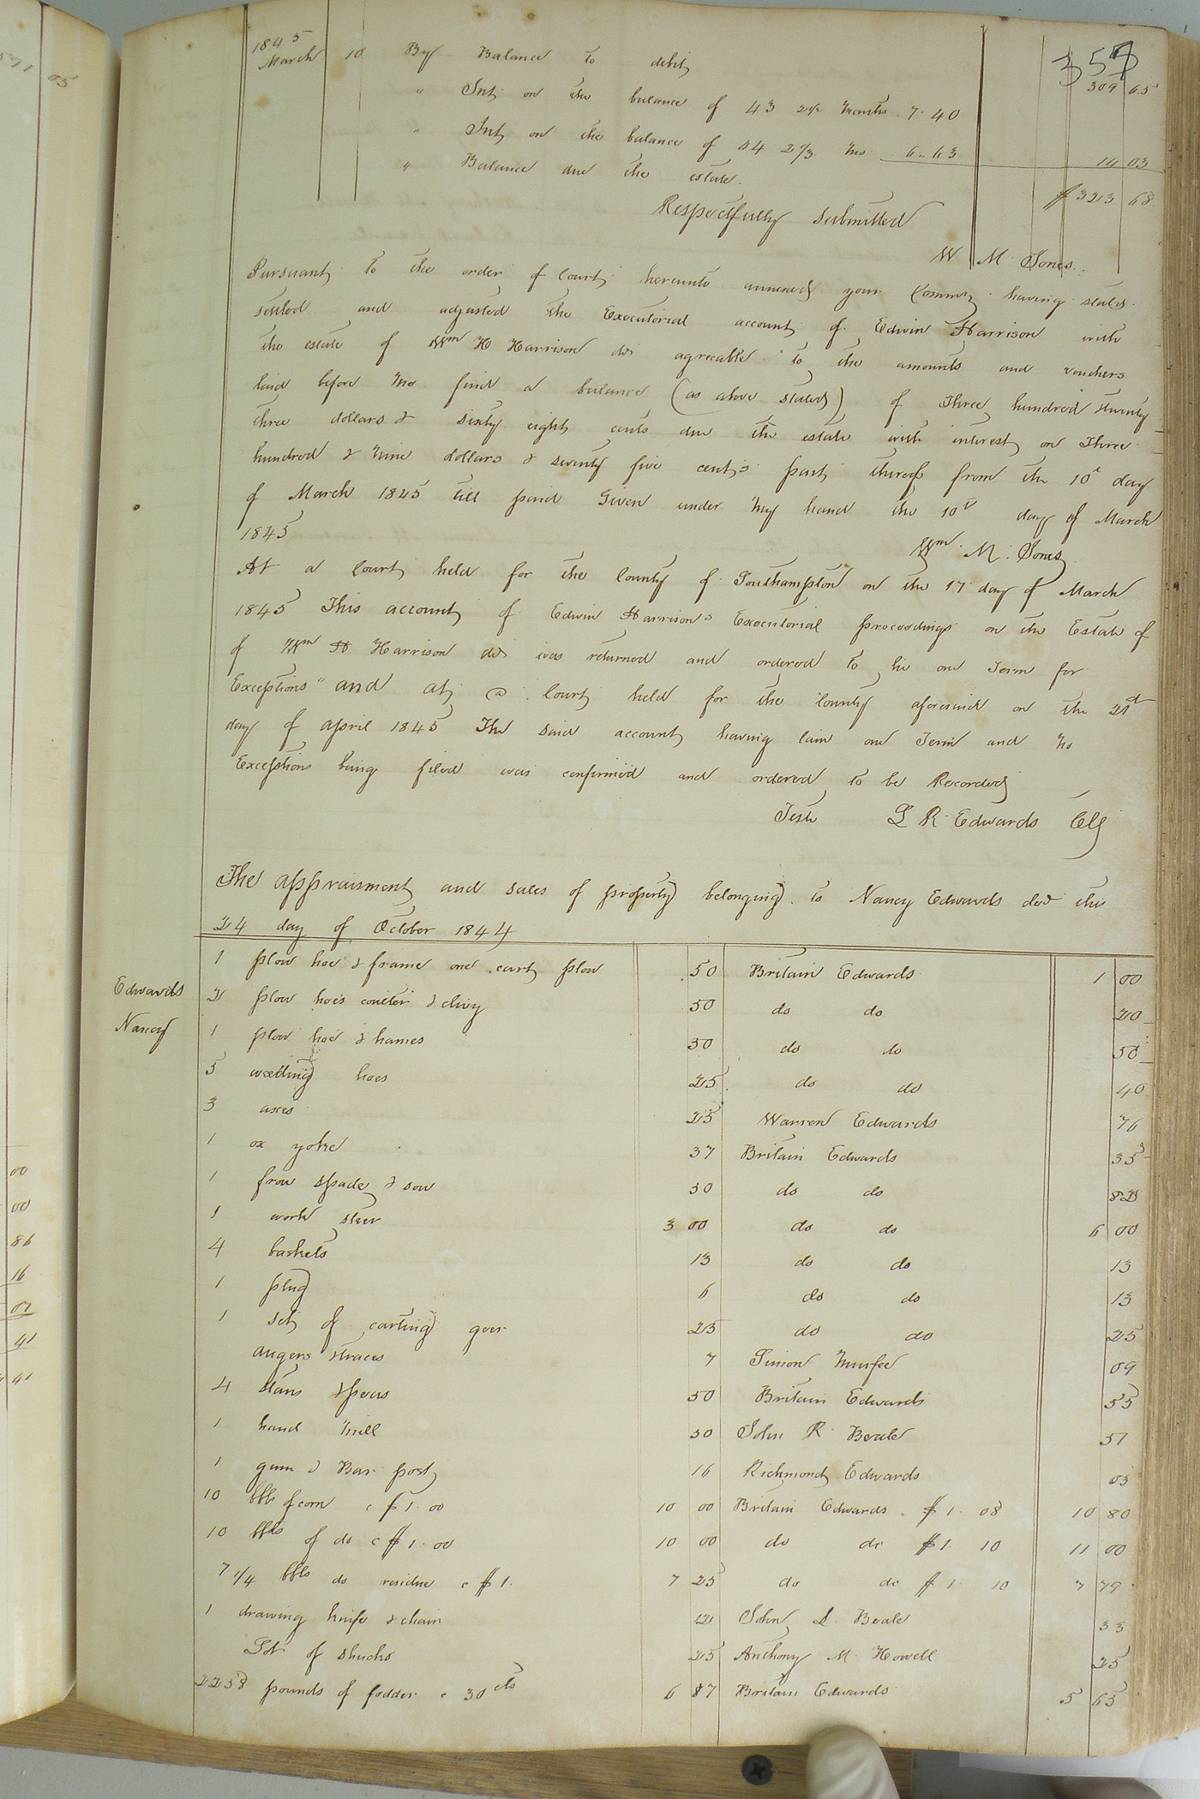 357
1845 March 10 By Balance to debit 309 65
" Int on the balance of 43 2/3 Months 7.40
" Int on the balance of 44 2/3 Mo 6.63 14 03
" Balance due the estate $323 68
Respectfully submitted
W M Jones
Pursuant to the order of Court hereunto annexed your Commr having stated
settled and adjusted the Executorial account of Edwin Harrison with
the estate of Wm H Harrison dec agreeable to the amounts and vouchers
laid before me find a balance (as above stated) of Three hundred Twenty
three dollars & sixty eight cents due the estate with interest on Three
hundred & Nine dollars & seventy five cents part thereof from the 10th day
of March 1845 till paid Given under my hand the 10th day of March
1845
Wm M. Jones
At a Court held for the County of Southampton on the 17 day of March
1845 This account of Edwin Harrisons Executorial proceedings on the Estate of
of Wm H Harrison dec was returned and ordered to lie one Term for
Exceptions" and at a Court held for the County aforesaid on the 21st
day of April 1845 The said account having lain one Term and no
Exceptions being filed was confirmed and ordered to be Recorded
Teste L R Edwards Clk
The appraisment and sales of property belonging to Nancy Edwards decd this
24 day of October 1844
Edwards
Nancy
1 plow hoe & frame one cart plow 50 Britain Edwards 1 00
2 plow hoes coulter & clivy 50 do do 20
1 plow hoe & hames 50 do do 50
5 weeding hoes 25 do do 40
3 axes 25 Warren Edwards 76
1 ox yoke 37 Britain Edwards 35
1 frow spade & saw 50 do do
1 work steer 3 00 do do 6 00
4 baskets 13 do do 13
1 plug 6 do do 13
1 set of carting gear 25 do do 25
augers & traces 7 Simon Murfee 09
4 50 Britain Edwards 55
1 hand mill 50 John R Beale 51
1 gum & Bar post 16 Richmond Edwards 03
10 bbls of corn c $1.00 10 00 Britain Edwards $1. 08 10 80
10 bbls of do c $1.00 10 00 do do $1. 10 11 00
7 1/4 bbls do residue c $1. 7 25 do do $1 10 7 79
1 drawing knife & chain John L. Beale 33
Lot of shucks 25 Anthony M Howell 25
2258 pounds of fodder c 30 cts 6 87 Britain Edwards 5 65
00
00
86
16
07
41
41
05